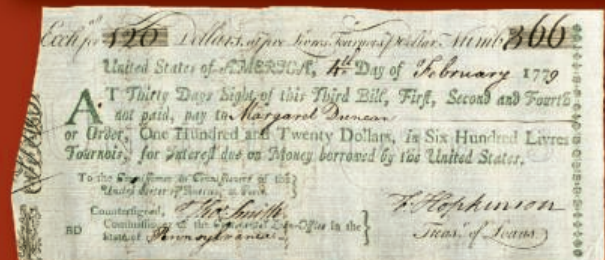 Exch for 120 Dollars, at five Livres Tournois Dollar. Numb 366
United States of AMERICA, 4th Day of February 1779
AT Thirty Days Sight of this Third Bill, First, Second and Fourth
not paid, pay to Margaret Duncan
or Order, One Hundred and Twenty Dollars, in Six Hundred Livres
Tournois, for Interest due on Money borrowed by the United States.
To the Commissioner or Commissioners of the
United States of America, at Paris.
Countersigned, Tho Smith
Commissioner of the Continental Loan-Office in the
State of Pennsylvania
BD
F. Hopkinson
Treasr of Loans